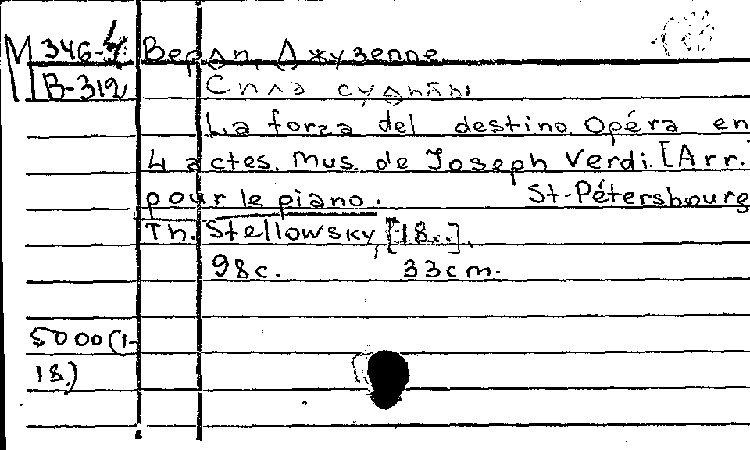 М 346-4 Верди, Джузеппе
В-312 Сила судьбы
La forza del destino. Opéra en
4 actes. Mus. de Joseph Verdi. [Arr.
pour le piano. St-Pétersbourg
Th. Stellowsky, [18..].
98c. 33cm.
5000(1-
18.)